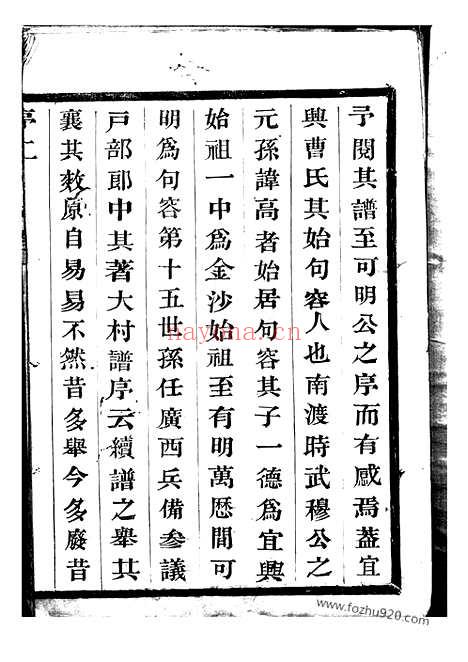 予閱其譜至可明公之序而有感焉蓋宜
興曹氏其始句容人也南渡時武穆公之
元孫諱高者始居句容其子一德為宜興
始祖一中為金沙始祖至有明萬歷間可
明為句容第十五世孫任廣西兵備參議
戶部郎中其著大村譜序云續譜之舉共
襄其敎原自易易不然昔多舉今多廢昔
序二
nayona.cn
www.fozhu920.com